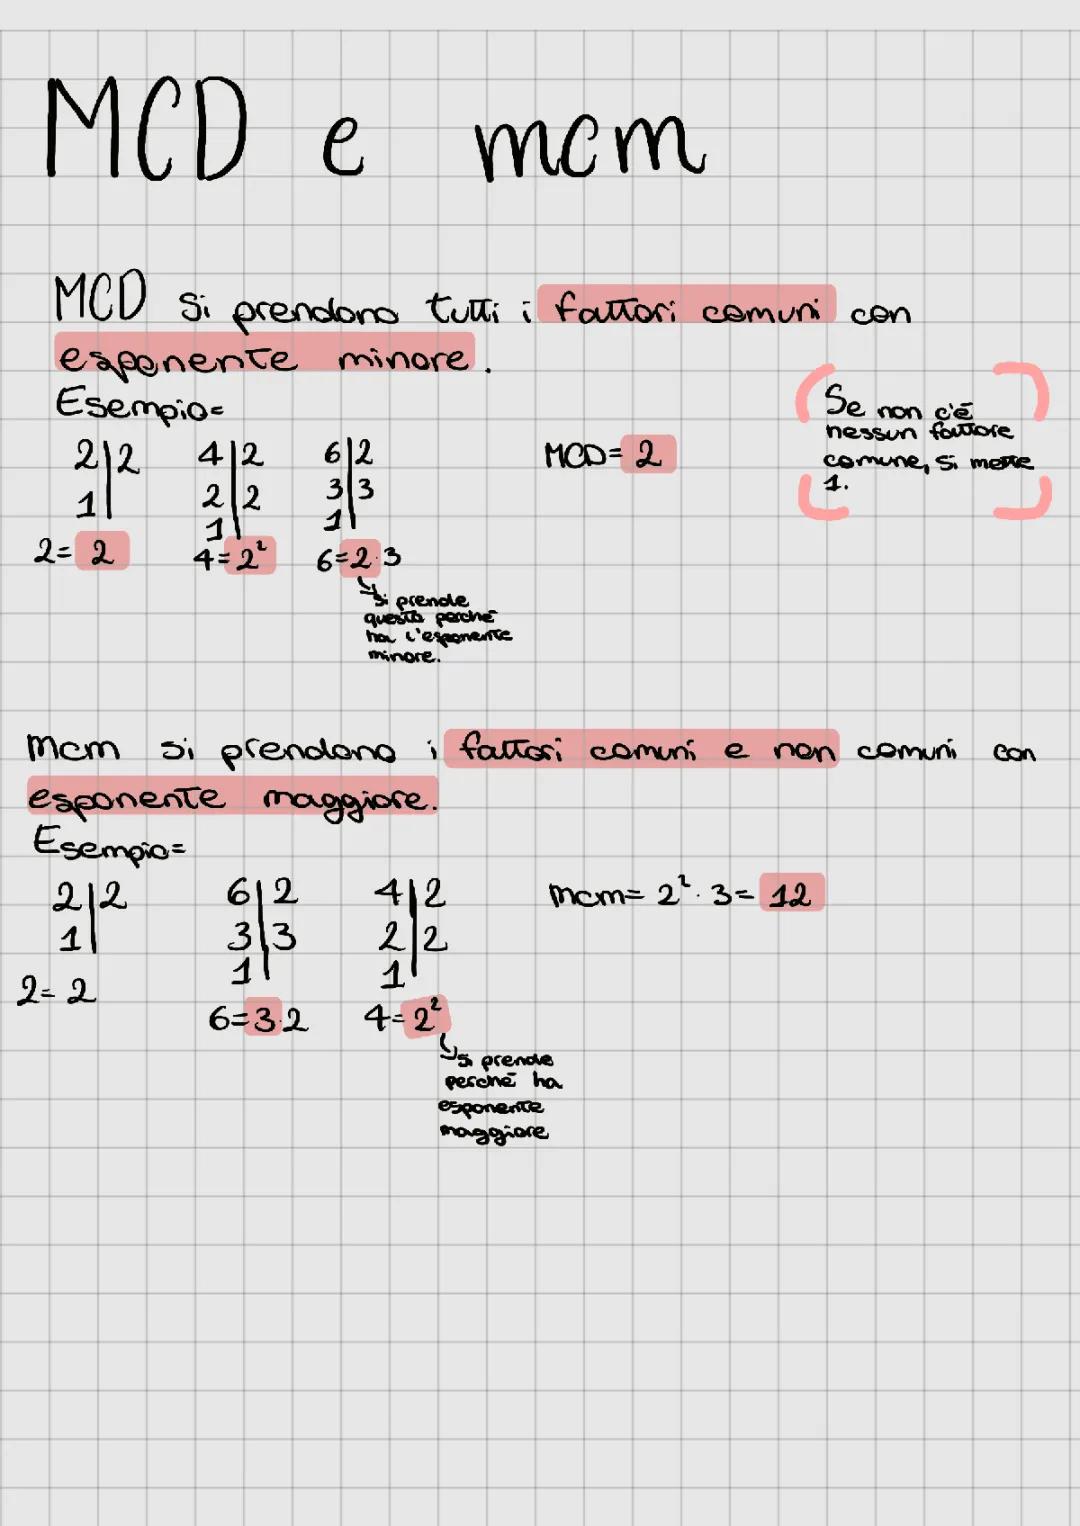 MCD e mcm
MCD si prendono tutti i fattori comuni con
esponente minore.
Esempio=
2|2 4|2 6|2 MCD= 2
1| 2|2 3|3
1| 1|
2= 2 4=2² 6=2·3
Si prende
questo perché
ha l'esponente
minore.
Se non c'é
nessun fattore
comune, si mette
1.
mcm si prendono i fattori comuni e non comuni con
esponente maggiore.
Esempio=
2|2 6|2 4|2 mcm= 2²·3= 12
1| 3|3 2|2
1| 1|
2=2
6=3·2 4=2²
Si prende
perché ha
esponente
maggiore